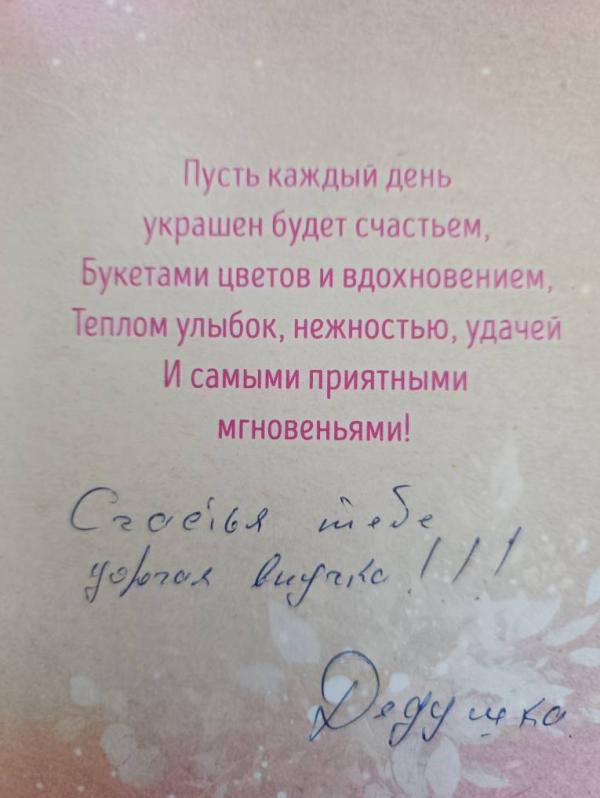 Пусть каждый день
украшен будет счастьем,
Букетами цветов и вдохновением,
Теплом улыбок, нежностью, удачей
И самыми приятными
мгновеньями!
Счастья тебе
дорогая внучка!!!
Дедушка